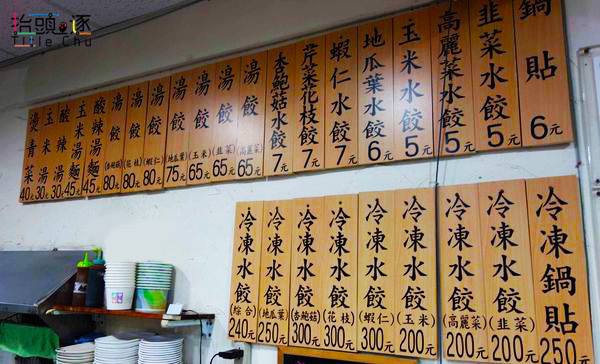 抬頭逐
Title Chu
鍋貼6元
韭菜水餃5元
高麗菜水餃5元
玉米水餃5元
地瓜葉水餃6元
蝦仁水餃7元
芹菜花枝水餃7元
杏鮑菇水餃7元
湯餃(高麗菜)65元
湯餃(韭菜)65元
湯餃(玉米)65元
湯餃(地瓜葉)75元
湯餃(蝦仁)80元
湯餃(花枝)80元
湯餃(杏鮑菇)80元
酸辣湯麵45元
玉米湯麵45元
酸辣湯30元
玉米湯30元
燙青菜40元
冷凍鍋貼250元
冷凍水餃(韭菜)200元
冷凍水餃(高麗菜)200元
冷凍水餃(玉米)200元
冷凍水餃(蝦仁)300元
冷凍水餃(花枝)300元
冷凍水餃(杏鮑菇)300元
冷凍水餃(地瓜葉)250元
冷凍水餃(綜合)240元